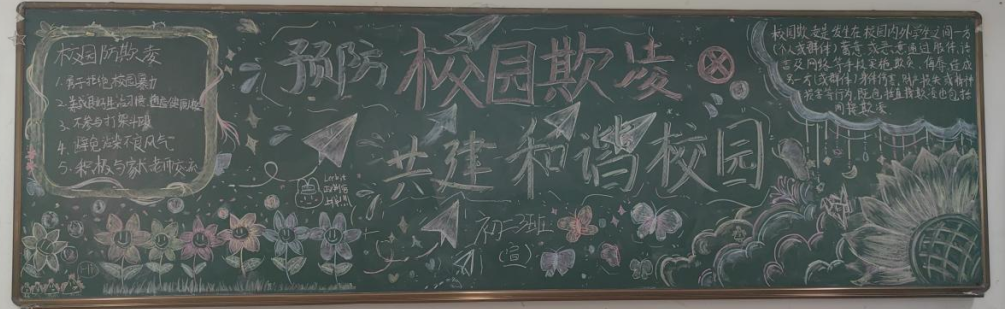 校园防欺凌
1. 勇于拒绝校园暴力
2. 养成良好生活习惯
3. 不参与打架斗殴
4. 避免沾染不良风气
5. 积极与家长老师交流
预防校园欺凌
共建和谐校园
初二班
(宣)
校园欺凌是发生在校园内外学生之间一方
(个人或群体)蓄意或恶意通过肢体、语
言及网络等手段实施欺负、侮辱造成
另一方(或群体)身体伤害、财产损失或精神
损害等行为,既包括直接欺凌也包括
间接欺凌